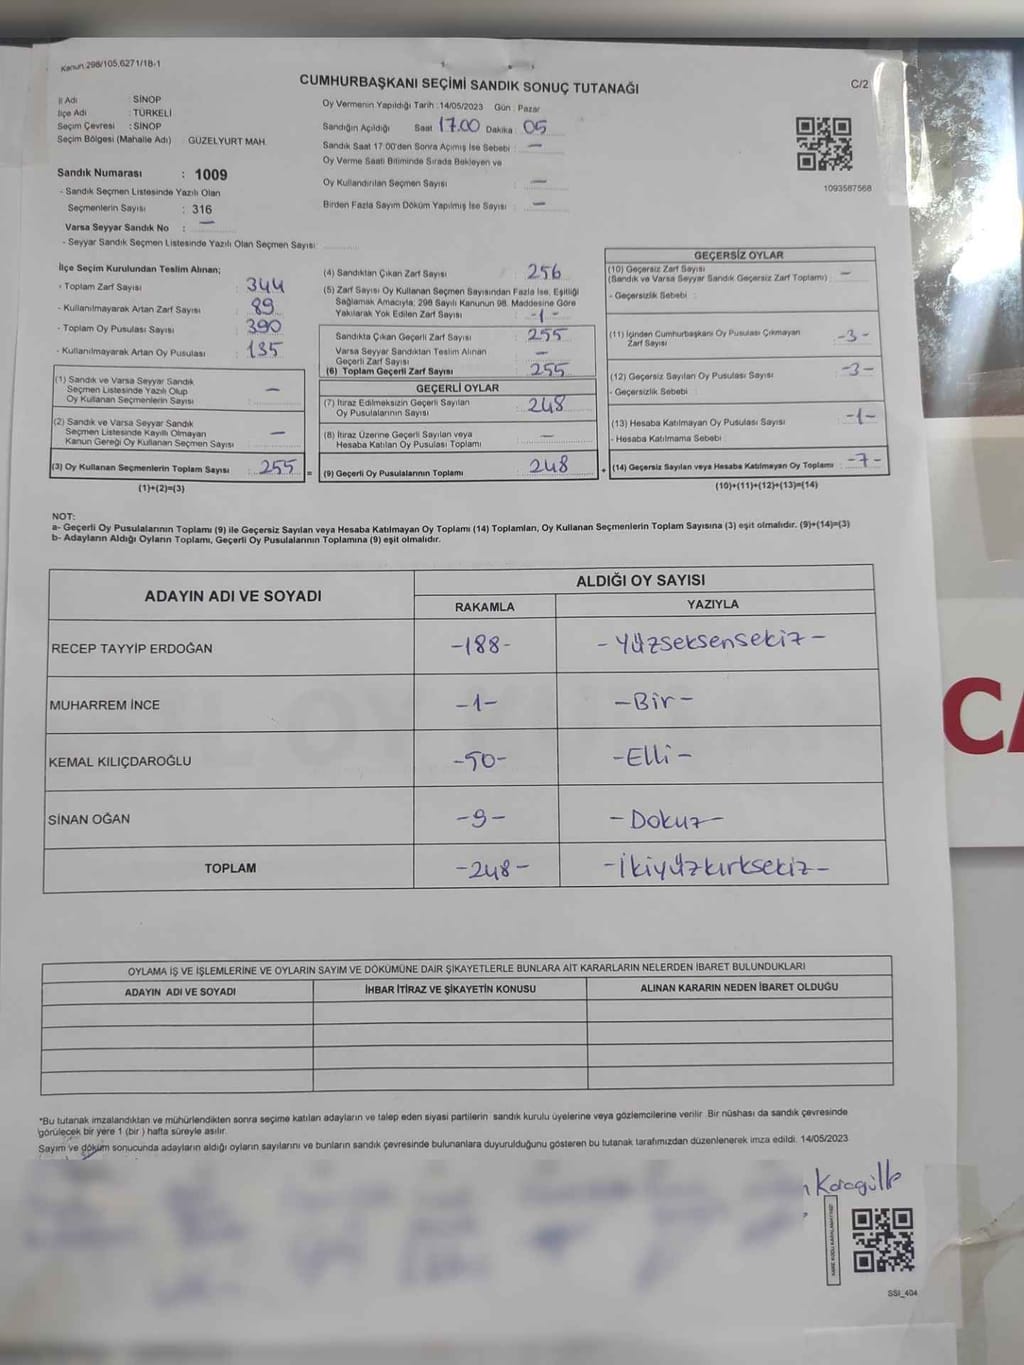 Kanun 298/105,6271/18-1
CUMHURBAŞKANI SEÇİMİ SANDIK SONUÇ TUTANAĞI
C/2
İl Adı : SİNOP
İlçe Adı : TÜRKELİ
Seçim Çevresi : SİNOP
Seçim Bölgesi (Mahalle Adı) GÜZELYURT MAH.
Sandık Numarası : 1009
- Sandık Seçmen Listesinde Yazılı Olan
Seçmenlerin Sayısı : 316
Varsa Seyyar Sandık No : —
- Seyyar Sandık Seçmen Listesinde Yazılı Olan Seçmen Sayısı:
Oy Vermenin Yapıldığı Tarih :14/05/2023 Gün : Pazar
Sandığın Açıldığı Saat 17.00 Dakika : 05
Sandık Saat 17 00'den Sonra Açımış İse Sebebi : —
Oy Verme Saati Bitiminde Sırada Bekleyen ve
Oy Kullandırılan Seçmen Sayısı : —
Birden Fazla Sayım Döküm Yapılmış İse Sayısı : —
1093587568
İlçe Seçim Kurulundan Teslim Alınan;
- Toplam Zarf Sayısı : 344
- Kullanılmayarak Artan Zarf Sayısı : 89
- Toplam Oy Pusulası Sayısı : 390
- Kullanılmayarak Artan Oy Pusulası : 135
(1) Sandık ve Varsa Seyyar Sandık
Seçmen Listesinde Yazılı Olup
Oy Kullanan Seçmenlerin Sayısı : —
(2) Sandık ve Varsa Seyyar Sandık
Seçmen Listesinde Kayıtlı Olmayan
Kanun Gereği Oy Kullanan Seçmen Sayısı : —
(3) Oy Kullanan Seçmenlerin Toplam Sayısı : 255 =
(1)+(2)=(3)
(4) Sandıktan Çıkan Zarf Sayısı : 256
(5) Zarf Sayısı Oy Kullanan Seçmen Sayısından Fazla İse, Eşitliği
Sağlamak Amacıyla, 298 Sayılı Kanunun 98. Maddesine Göre
Yakılarak Yok Edilen Zarf Sayısı : -1-
Sandıkta Çıkan Geçerli Zarf Sayısı : 255
Varsa Seyyar Sandıktan Teslim Alınan
Geçerli Zarf Sayısı : —
(6) Toplam Geçerli Zarf Sayısı : 255
GEÇERLİ OYLAR
(7) İtiraz Edilmeksizin Geçerli Sayılan
Oy Pusulalarının Sayısı : 248
(8) İtiraz Üzerine Geçerli Sayılan veya
Hesaba Katılan Oy Pusulası Toplamı : —
(9) Geçerli Oy Pusulalarının Toplamı : 248 +
GEÇERSİZ OYLAR
(10) Geçersiz Zarf Sayısı
(Sandık ve Varsa Seyyar Sandık Geçersiz Zarf Toplamı) : —
- Geçersizlik Sebebi :
(11) İçinden Cumhurbaşkanı Oy Pusulası Çıkmayan
Zarf Sayısı : -3-
(12) Geçersiz Sayılan Oy Pusulası Sayısı : -3-
- Geçersizlik Sebebi :
(13) Hesaba Katılmayan Oy Pusulası Sayısı : -1-
- Hesaba Katılmama Sebebi :
(14) Geçersiz Sayılan veya Hesaba Katılmayan Oy Toplamı : -7-
(10)+(11)+(12)+(13)=(14)
NOT:
a- Geçerli Oy Pusulalarının Toplamı (9) ile Geçersiz Sayılan veya Hesaba Katılmayan Oy Toplamı (14) Toplamları, Oy Kullanan Seçmenlerin Toplam Sayısına (3) eşit olmalıdır. (9)+(14)=(3)
b- Adayların Aldığı Oyların Toplamı, Geçerli Oy Pusulalarının Toplamına (9) eşit olmalıdır.
ADAYIN ADI VE SOYADI
ALDIĞI OY SAYISI
RAKAMLA YAZIYLA
RECEP TAYYİP ERDOĞAN -188- -Yüzseksensekiz-
MUHARREM İNCE -1- -Bir-
KEMAL KILIÇDAROĞLU -50- -Elli-
SİNAN OĞAN -9- -Dokuz-
TOPLAM -248- -İkiyüzkırksekiz-
OYLAMA İŞ VE İŞLEMLERİNE VE OYLARIN SAYIM VE DÖKÜMÜNE DAİR ŞİKAYETLERLE BUNLARA AİT KARARLARIN NELERDEN İBARET BULUNDUKLARI
ADAYIN ADI VE SOYADI İHBAR İTİRAZ VE ŞİKAYETİN KONUSU ALINAN KARARIN NEDEN İBARET OLDUĞU
*Bu tutanak imzalandıktan ve mühürlendikten sonra seçime katılan adayların ve talep eden siyasi partilerin sandık kurulu üyelerine veya gözlemcilerine verilir. Bir nüshası da sandık çevresinde
görülecek bir yere 1 (bir ) hafta süreyle asılır.
Sayım ve döküm sonucunda adayların aldığı oyların sayılarını ve bunların sandık çevresinde bulunanlara duyurulduğunu gösteren bu tutanak tarafımızdan düzenlenerek imza edildi. 14/05/2023
Karagülle
SSI_404
CA